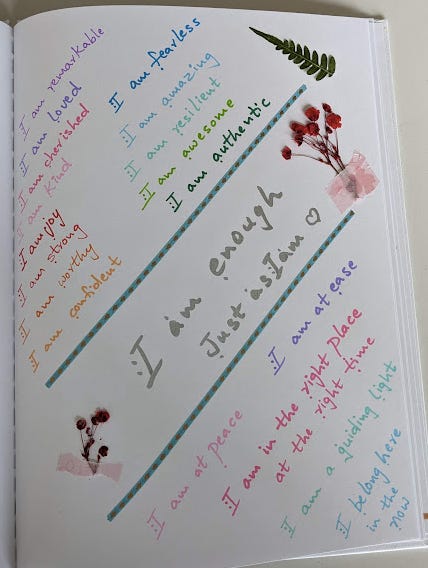 I am remarkable
I am loved
I am cherished
I am kind
I am joy
I am strong
I am worthy
I am confident
I am fearless
I am amazing
I am resilient
I am awesome
I am authentic
I am enough
Just as I am ♡
I am at ease
I am in the right place
at the right time
I am at peace
I am a guiding light
I belong here
in the
now